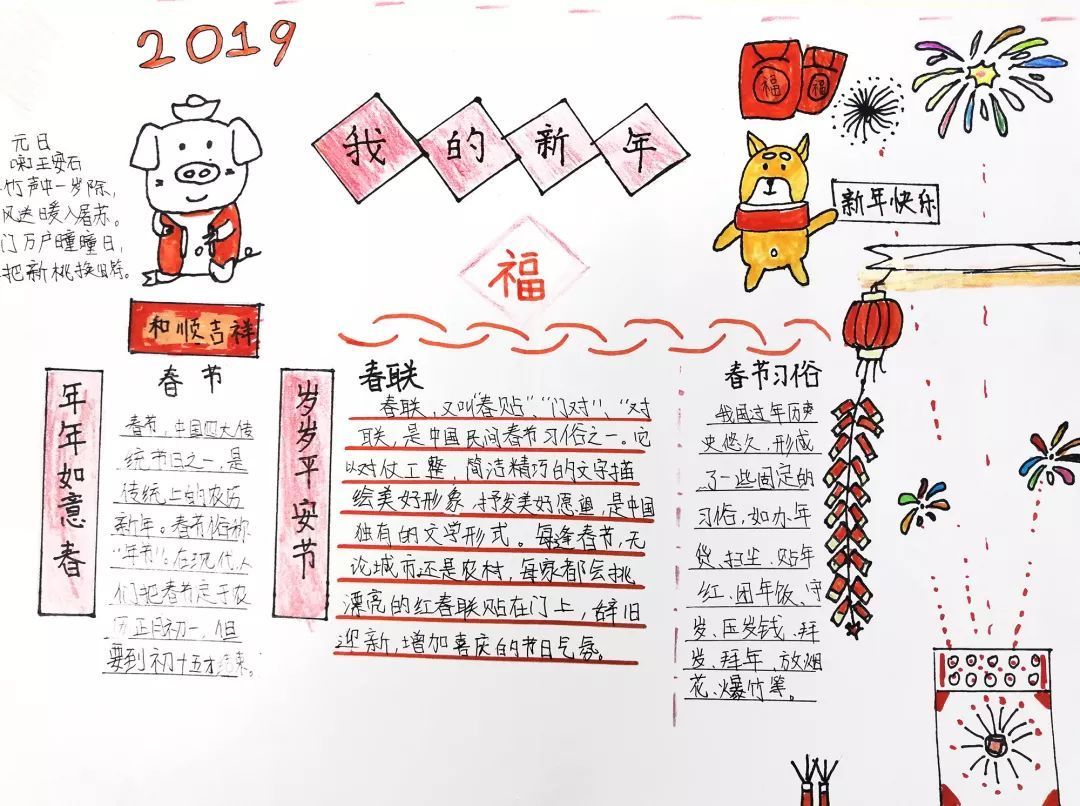 2019
我的新年
福
福
福
新年快乐
元日
王安石
竹声中一岁除,
风送暖入屠苏。
门万户曈曈日,
把新桃换旧符。
和顺吉祥
年年如意春
岁岁平安节
春节
春节,中国四大传
统节日之一,是
传统上的农历
新年。春节俗称
“年节”。在现代人
们把春节定于农
历正月初一,但
要到初十五才结束。
春联
春联,又叫“春贴”、“门对”、“对
联,是中国民间春节习俗之一。它
以对仗工整,简洁精巧的文字描
绘美好形象,抒发美好愿望,是中国
独有的文学形式。每逢春节,无
论城市还是农村,每家都会挑
漂亮的红春联贴在门上,辞旧
迎新,增加喜庆的节日气氛。
春节习俗
我国过年历史
史悠久,形成
了一些固定的
习俗,如办年
货、扫尘、贴年
红、团年饭、守
岁、压岁钱、拜
岁、拜年、放烟
花、爆竹等。